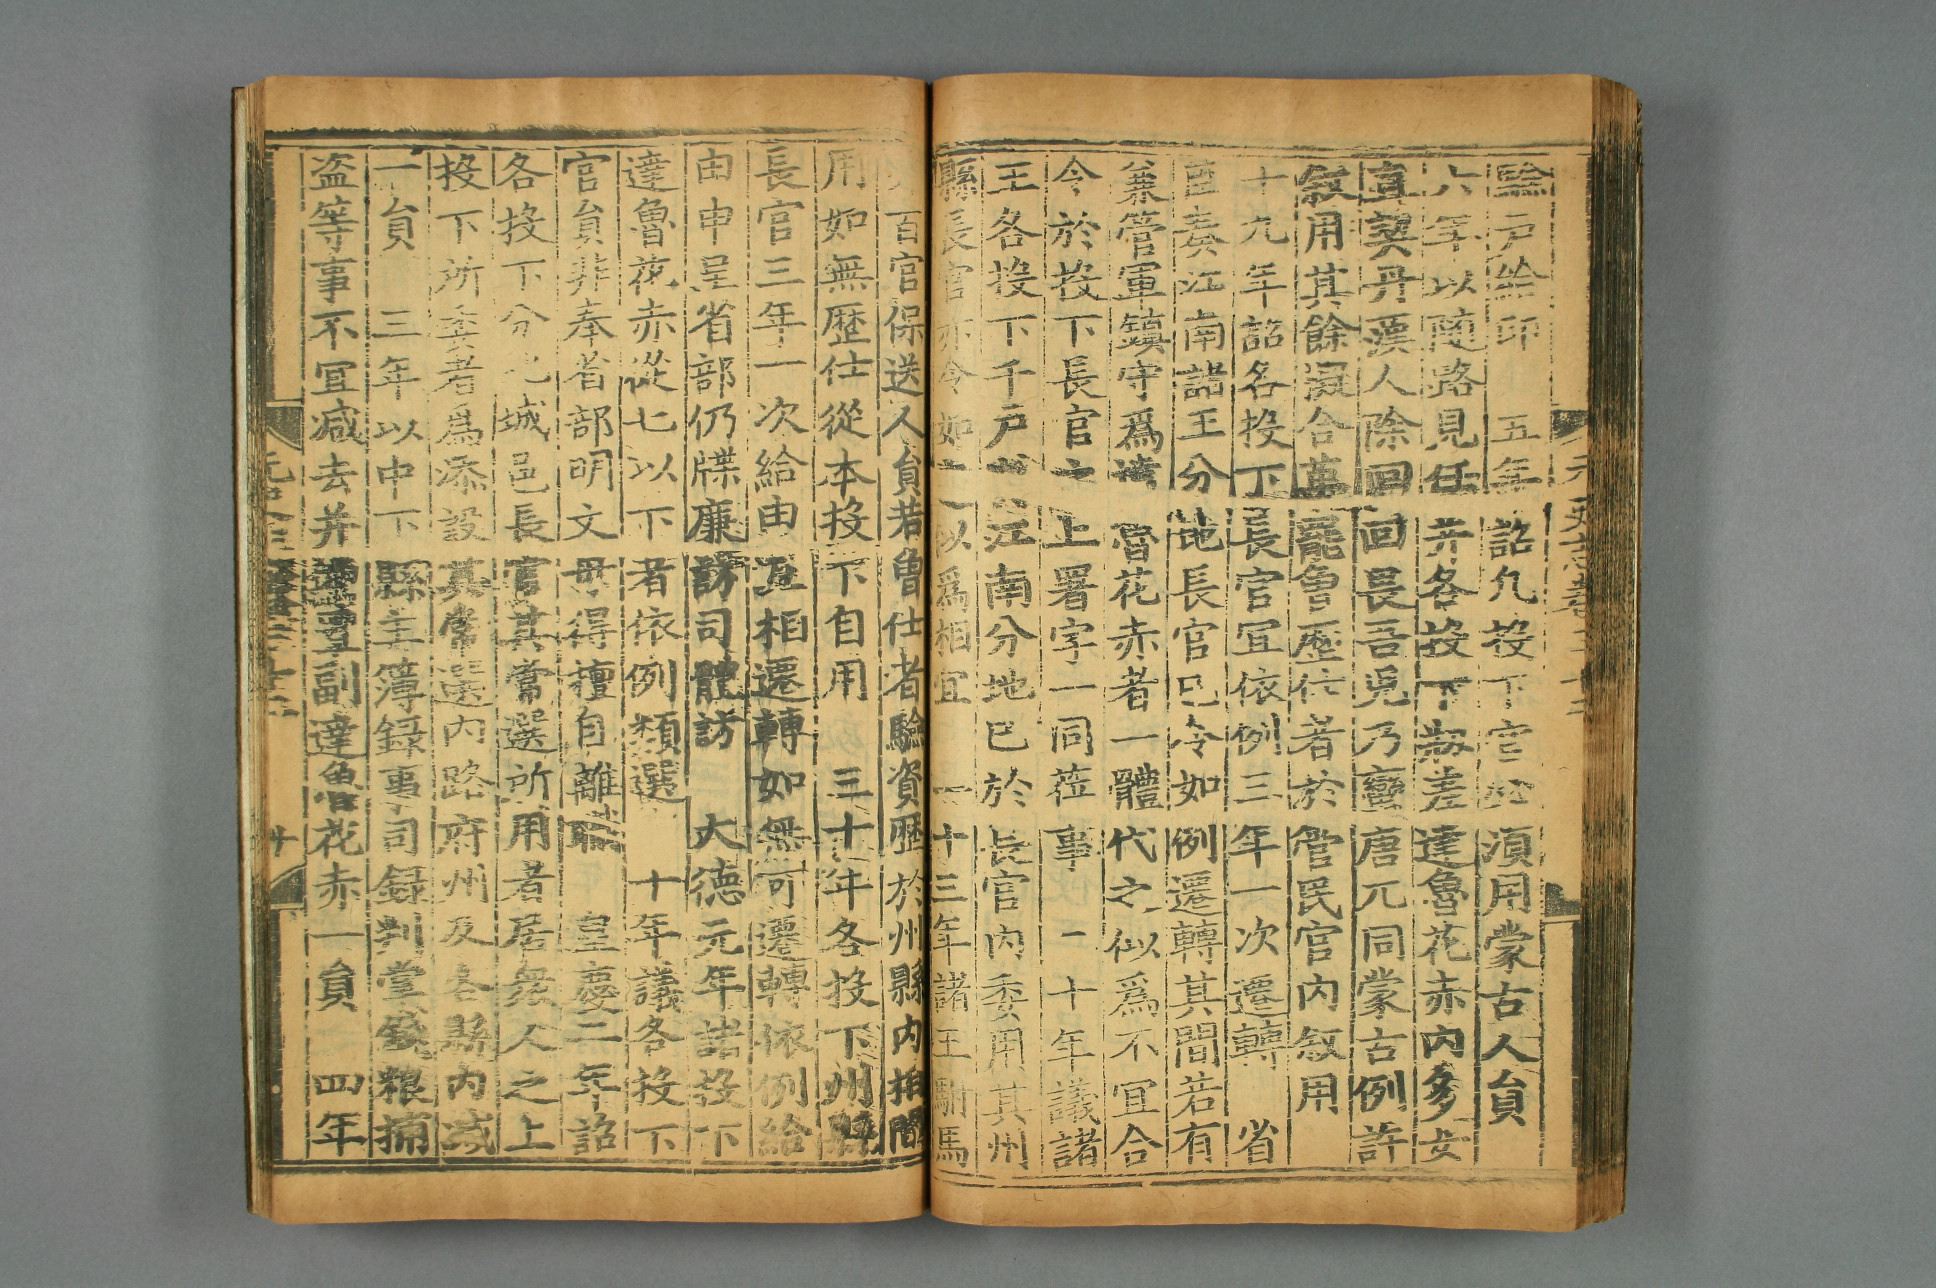 元史志卷三十二
戶給印　五年詔凡投下官必須用蒙古人員
六年以隨路見任并各投下剏差達魯花赤內多女
直契丹漢人除回回畏吾兒乃蠻唐兀同蒙古例許
敘用其餘擬合革罷曾歷仕者於管民官內敘用
十九年詔各投下長官宜依例三年一次遷轉　省
臣奏江南諸王分地長官已令如例遷轉其間若有
兼管軍鎮守爲達魯花赤者一體代之似爲不宜合
今於投下長官之上署字一同蒞事　二十年議諸
王各投下千戶於江南分地已於長官內委用其州
縣長官亦令如之似爲相宜　二十三年諸王駙馬
百官保送人員若曾仕者驗資歷於州縣內相間
用如無歷仕從本投下自用　三十年各投下州縣
長官三年一次給由互相遷轉如無可遷轉依例給
由申呈省部仍牒廉訪司體訪　大德元年諸投下
達魯花赤從七以下者依例類選　十年議各投下
官員非奉省部明文毋得擅自離職　皇慶二年詔
各投下分地城邑長官其常選所用者居衆人之上
投下所委者爲添設其常選內路府州及各縣內減
一員　三年以中下縣主簿錄事司錄判掌錢粮捕
盗等事不宜減去并増置副達魯花赤一員　四年